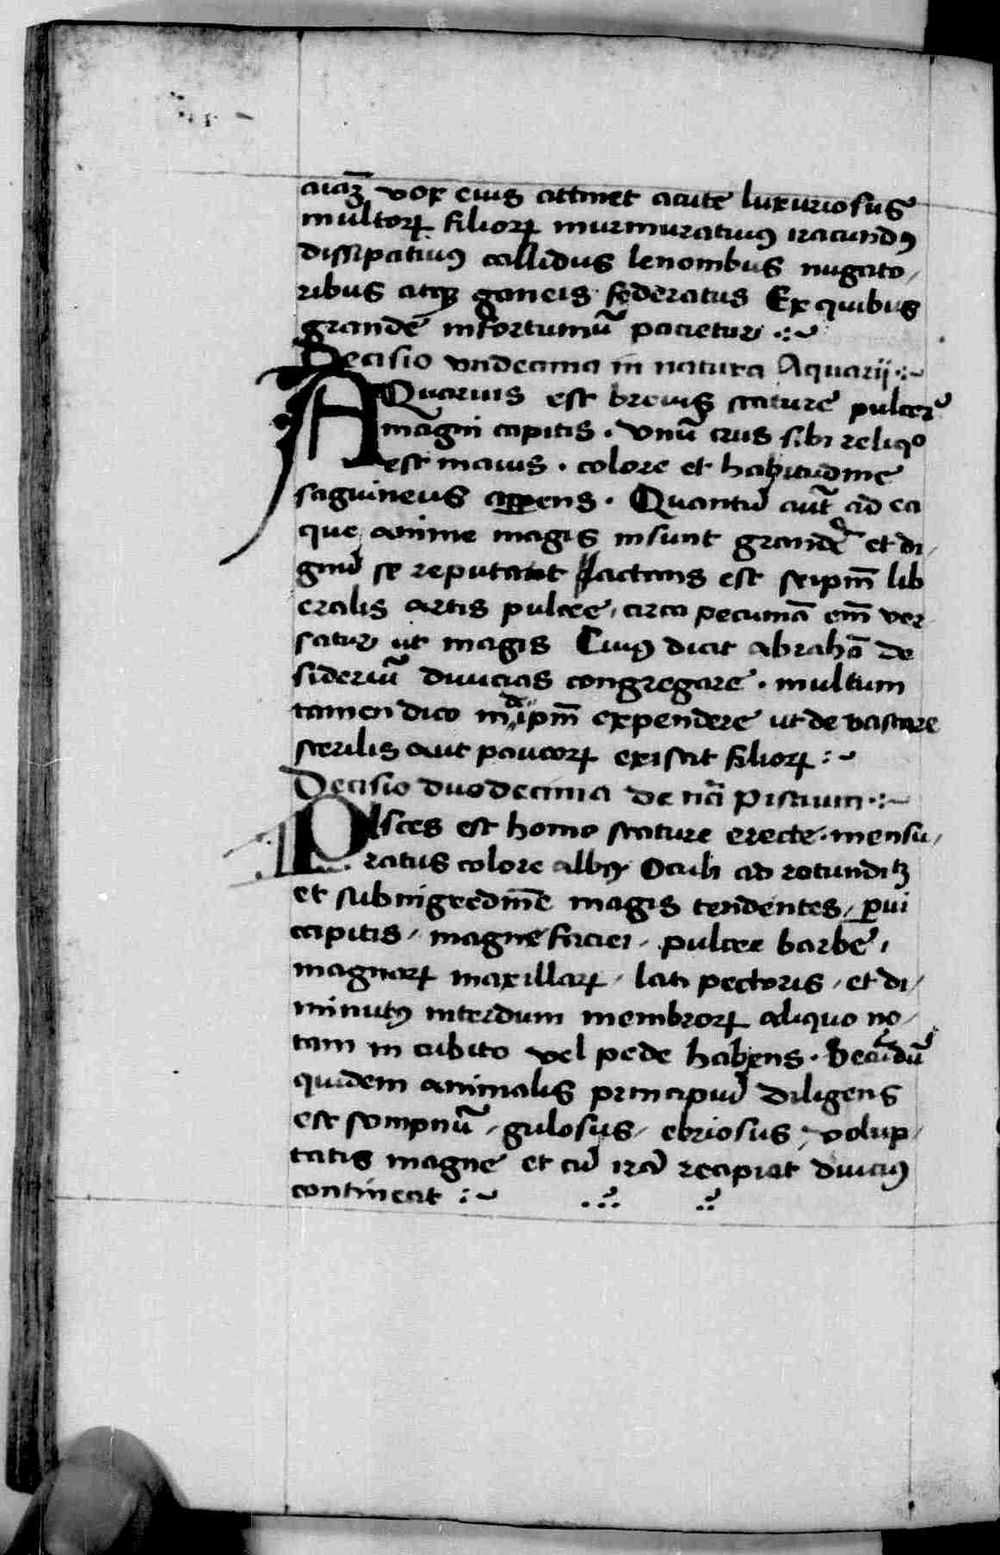 aiaꝫ vox eius attinet acute luxuriosus
multoꝝ filioꝝ murmuratiuꝰ iracundꝰ
dissipatiuꝰ callidus lenonibus nugato/
ribus atqꝫ ganeis federatus Ex quibus
grande infortuniū pacietur
Decisio vndecima in natura Aquarij
AQuarius est breuis stature pulcer
magni capitis . vnū crus sibi reliqͦ
est maius . colore et habitudine
saguineus appens . Quantū aut̄ ad ea
que anime magis insunt grandē et di/
gnū se reputat Jactans est seipm̄ lib
eralis artis pulcre, circa pecuniā em̄ ver
satur ut magis Cuiꝰ dicit abrahā de
sideriū diuicias congregare . multum
tamen dico in ipm̄ expendere ut de vastare
sterilis aut paucoꝝ existit filioꝝ
Decisio duodecima de nāa Piscium
PIsces est homo stature erecte . mensu/
ratus colore albꝰ Oculi ad rotunditꝫ
et subnigredinē magis tendentes / ꝑui
capitis / magne faciei / pulcre barbe /
magnaꝝ maxillaꝝ / lati pectoris / et di/
minutꝰ interdum membroꝝ aliquo no/
tam in cubito vel pede habens . Secūdū
quidem animalis principiū diligens
est sompnū / gulosus / ebriosus / volup/
tatis magne et cū irā recipiat diuiciꝰ
contineat